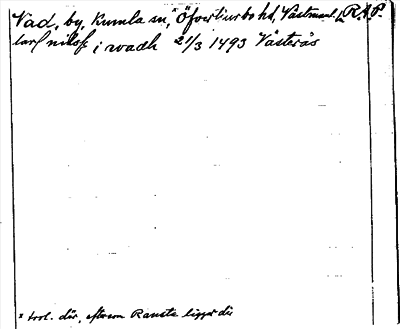 Vad, by, Kumla sn,ˣ Öfvertjurbo hd, Västmanl. l. RAP.
larf nilss i wadh 21/3 1493 Västerås
x trol. där, eftersom Ransta ligger där